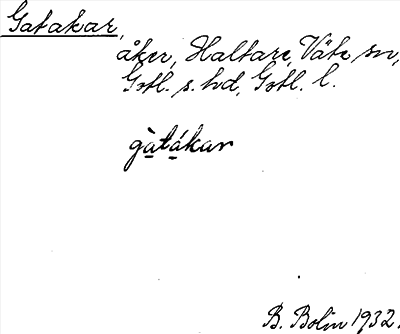 Gatakar,
åker, Haltare, Väte sn,
Gotl. s. hd, Gotl. l.
gàtákar
B. Bolin 1932.